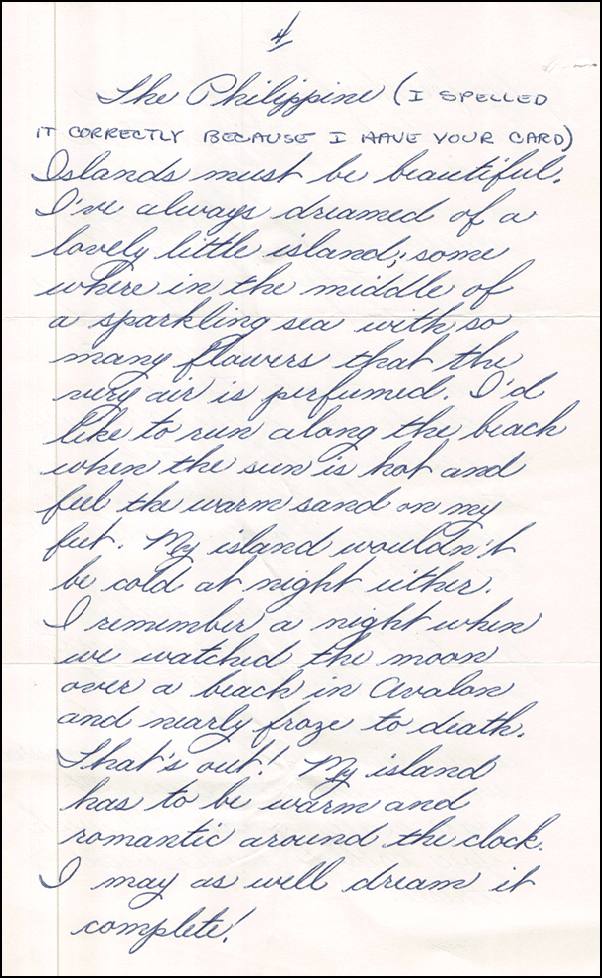 4
The Philippine (I SPELLED
IT CORRECTLY BECAUSE I HAVE YOUR CARD)
Islands must be beautiful.
I've always dreamed of a
lovely little island; some
where in the middle of
a sparkling sea with so
many flowers that the
very air is perfumed. I'd
like to run along the beach
when the sun is hot and
feel the warm sand on my
feet. My island wouldn't
be cold at night either.
I remember a night when
we watched the moon
over a beach in Avalon
and nearly froze to death.
That's out! My island
has to be warm and
romantic around the clock.
I may as well dream it
complete!